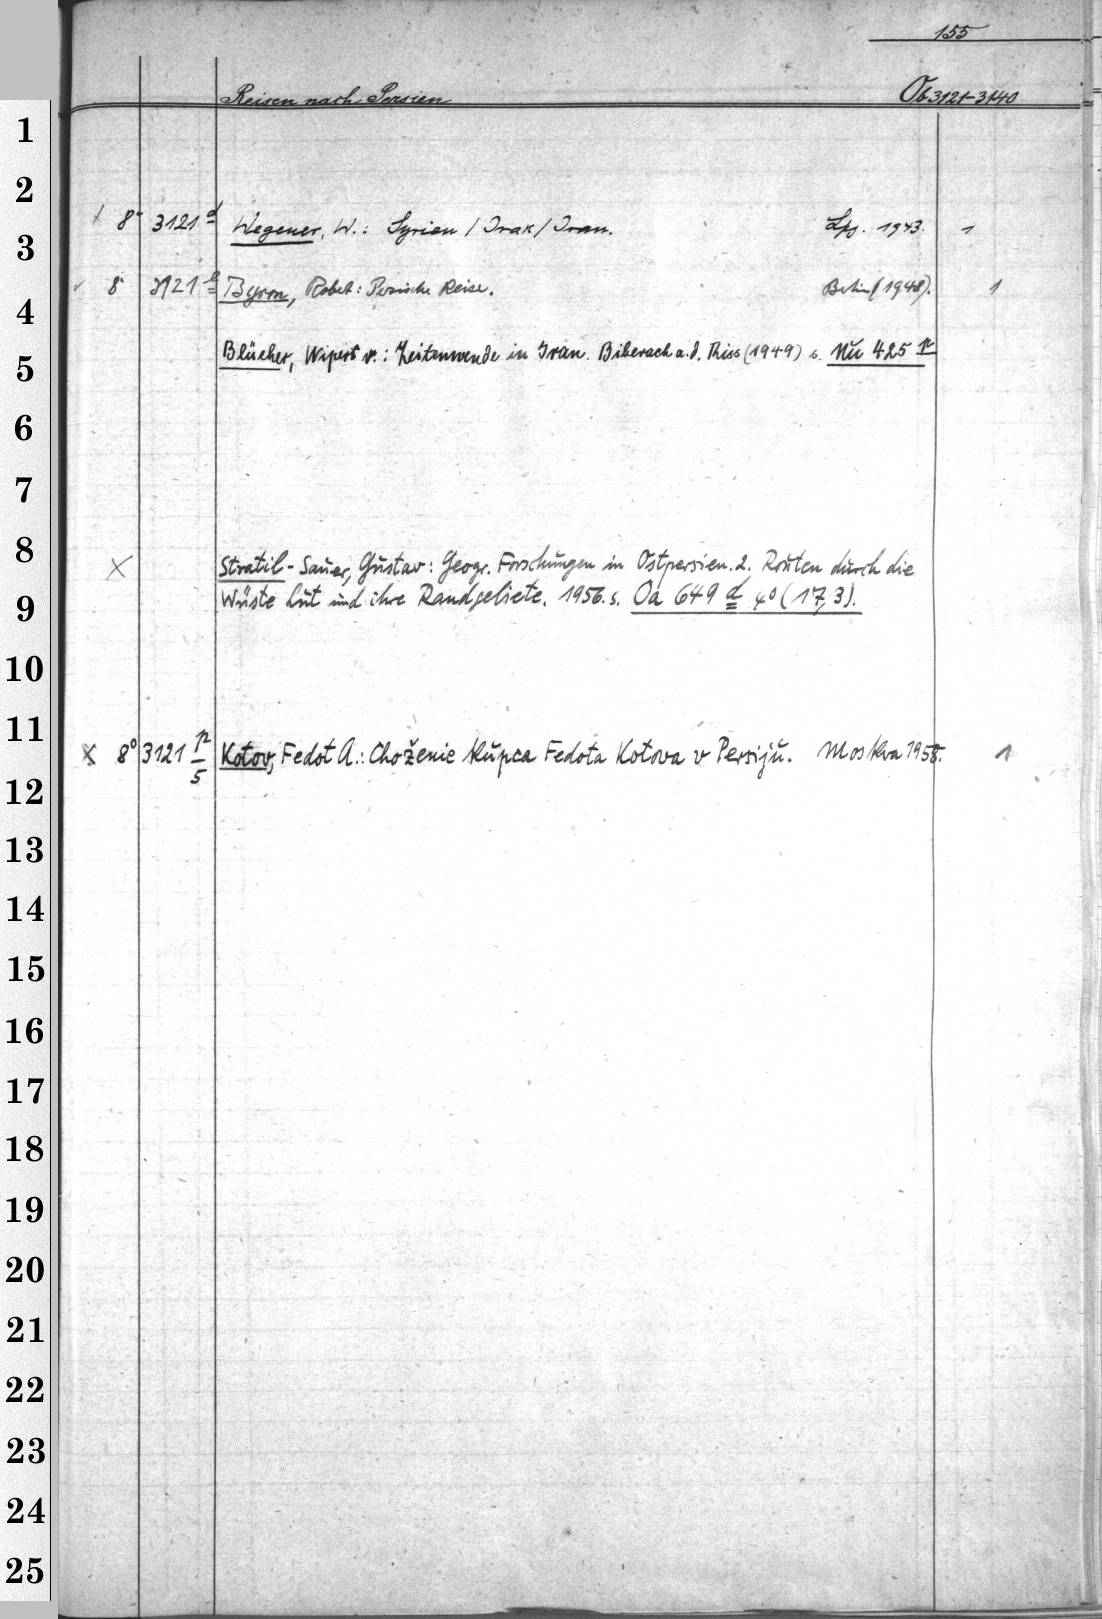 155
Reisen nach Persien Ob 3121-3140
1
2
8° 3121 d Wegener, W.: Syrien / Irak / Iran. Lpz. 1943. 1
3
8° 3121 e Byron, Robert: Persische Reise. Berlin (1948). 1
4
Blücher, Wipert v.: Zeitenwende in Iran. Biberach a.d. Riss (1949) s. Nu 425 p
5
6
7
8
X Stratil-Sauer, Gustav: Geogr. Forschungen in Ostpersien. 2. Routen durch die
9
Wüste Lut und ihre Randgebiete. 1956. s. Oa 649 d 4° (17,3).
10
11
X 8° 3121 p/5 Kotov, Fedot A.: Choženie kupca Fedota Kotova v Persiju. Moskva 1958. 1
12
13
14
15
16
17
18
19
20
21
22
23
24
25